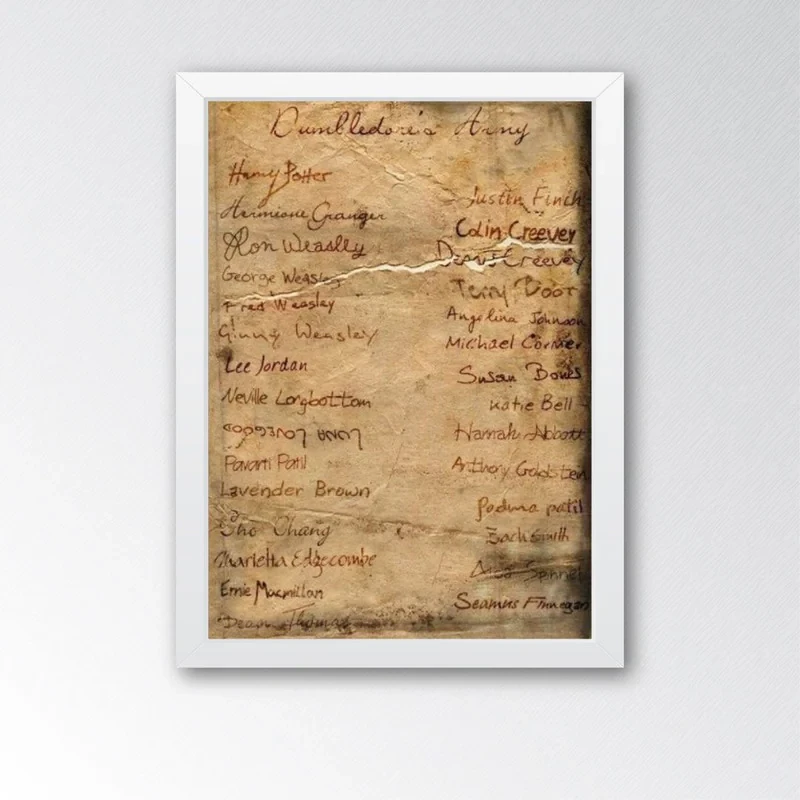 Dumbledore's Army
Harry Potter
Hermione Granger
Ron Weasley
George Weasley
Fred Weasley
Ginny Weasley
Lee Jordan
Neville Longbottom
LUNA LOVEGOOD
Parvarti Patil
Lavender Brown
Cho Chang
Marietta Edgecombe
Ernie Macmillan
Dean Thomas
Justin Finch
Colin Creevey
Dennis Creevey
Terry Boot
Angelina Johnson
Michael Corner
Susan Bones
Katie Bell
Hannah Abbott
Anthony Goldstein
Padma patil
Zach Smith
Spinnet
Seamus Finnegan